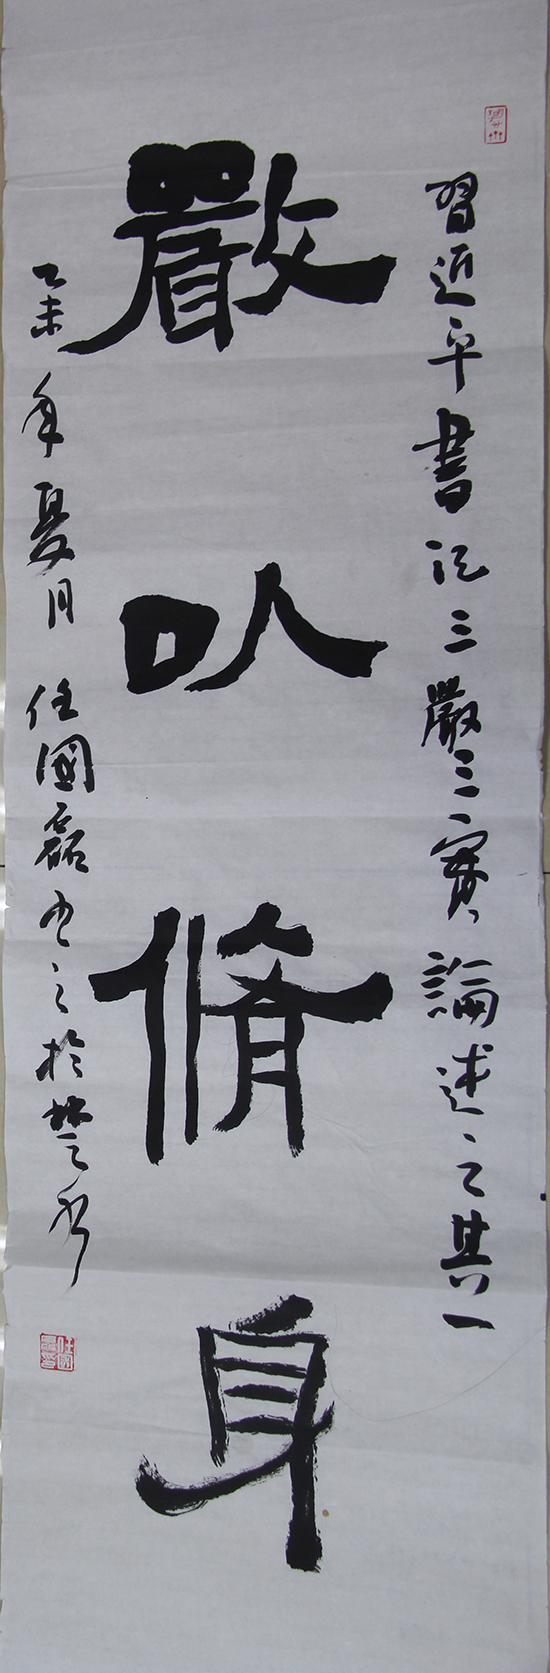 習近平書記三嚴三實論述之其一
嚴以脩身
乙未年夏月任國磊書之於楚水